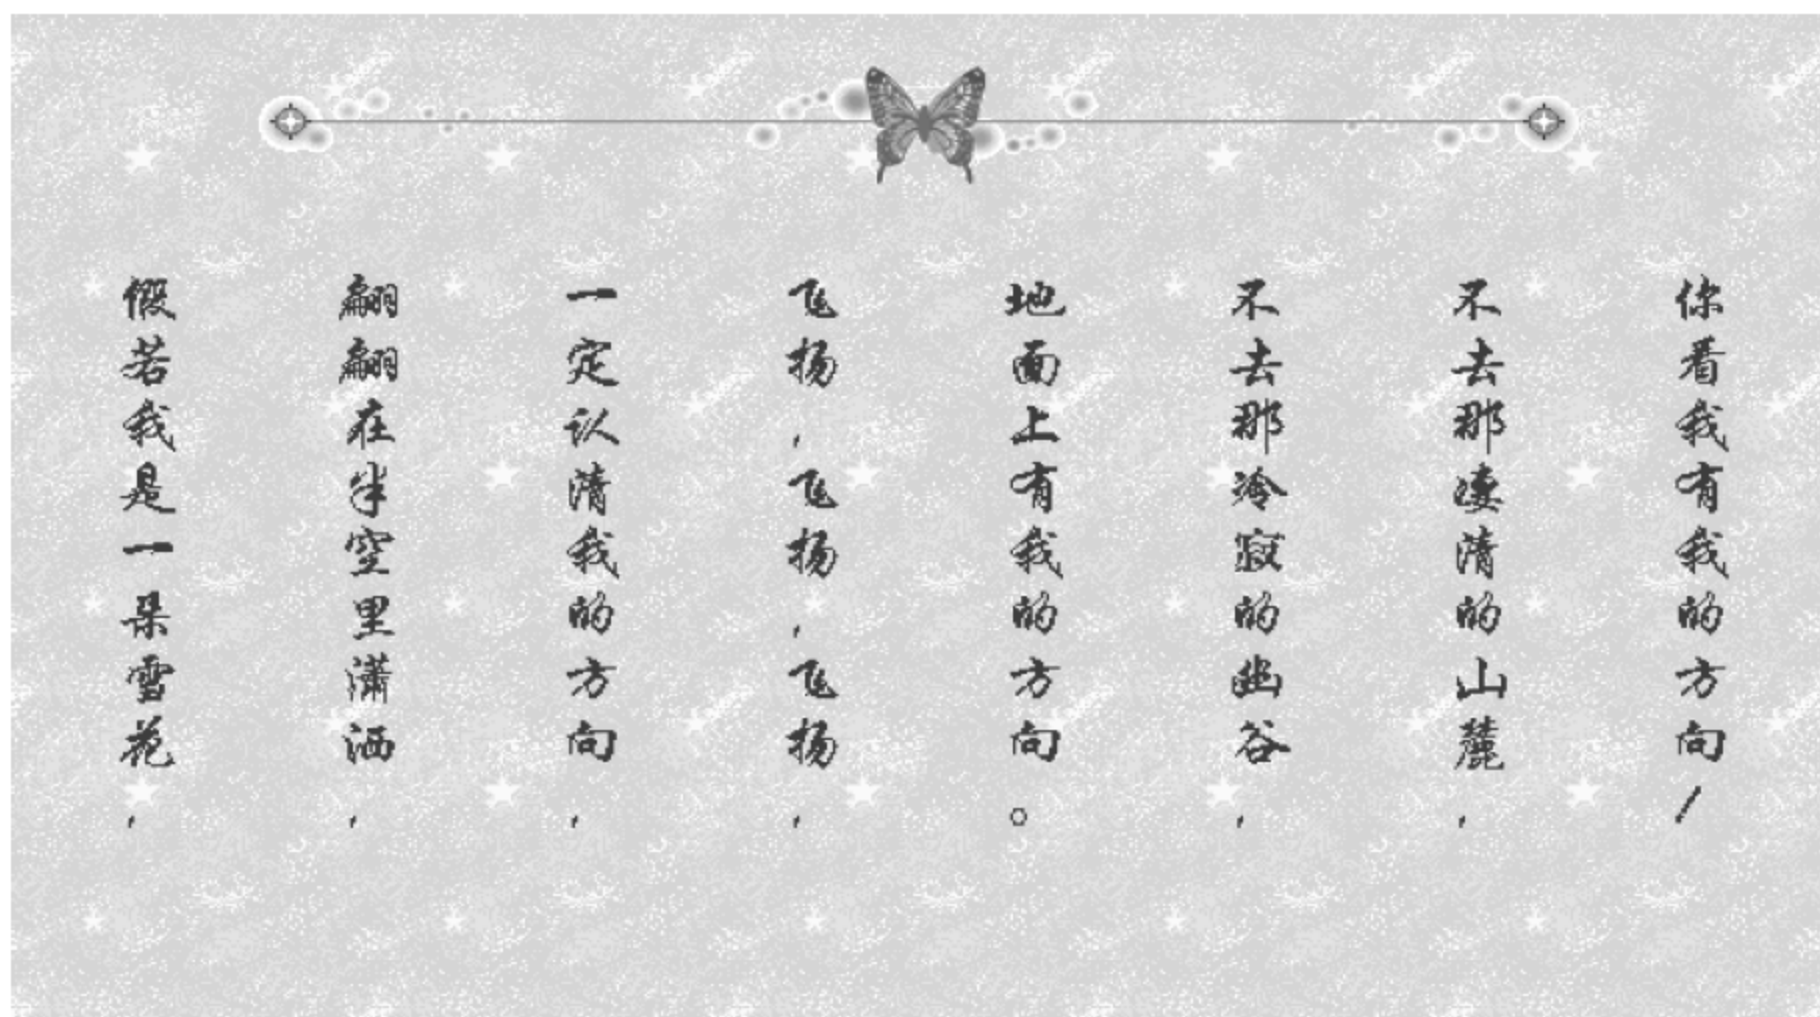 假若我是一朵雪花，
翩翩在半空里潇洒，
一定认清我的方向，
飞扬，飞扬，飞扬，
地面上有我的方向。
不去那冷寂的幽谷，
不去那凄清的山麓，
你看我有我的方向/